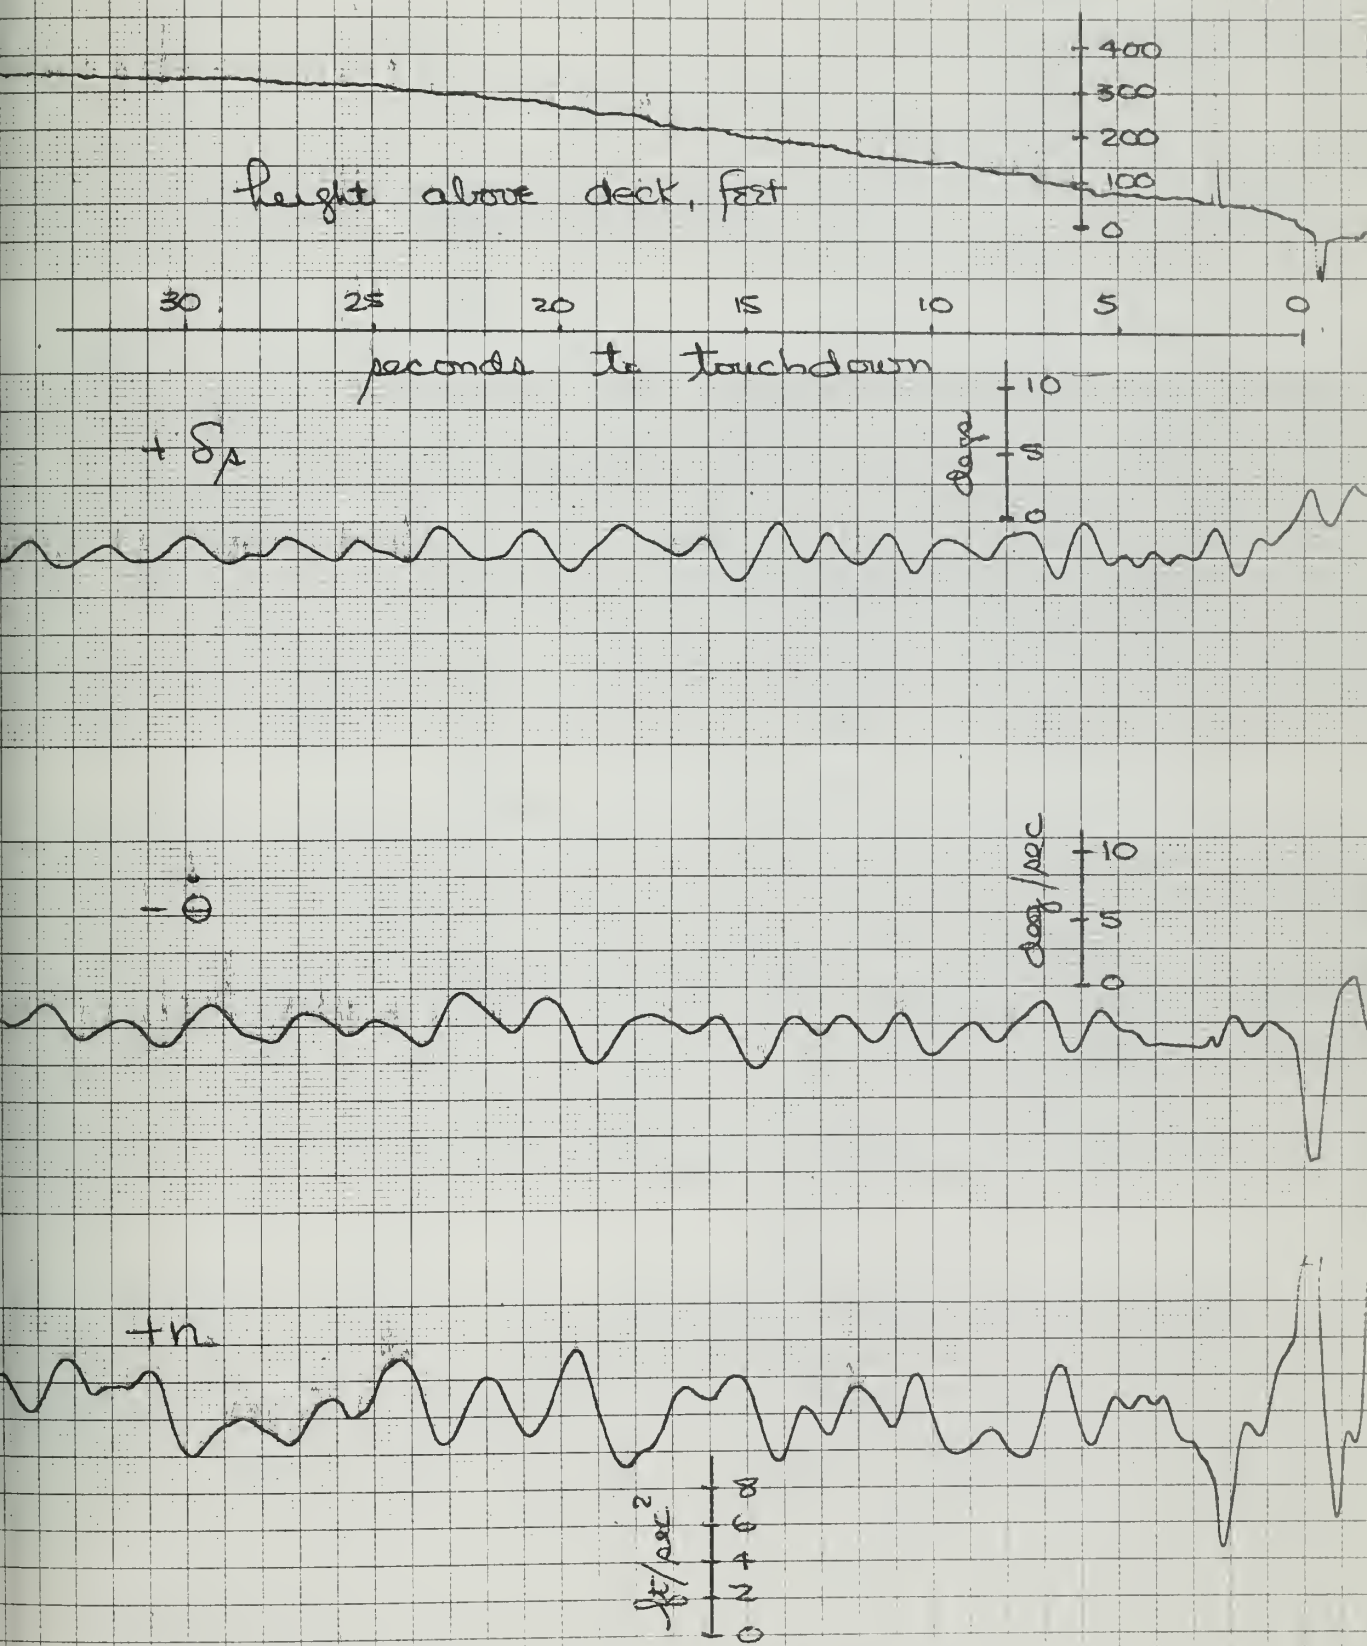 400
300
200
100
0
height above deck, feet
30 25 20 15 10 5 0
seconds to touchdown
+ δs
degs
10
5
0
- Θ̇
deg/sec
10
5
0
+n
ft/sec²
8
6
4
2
0